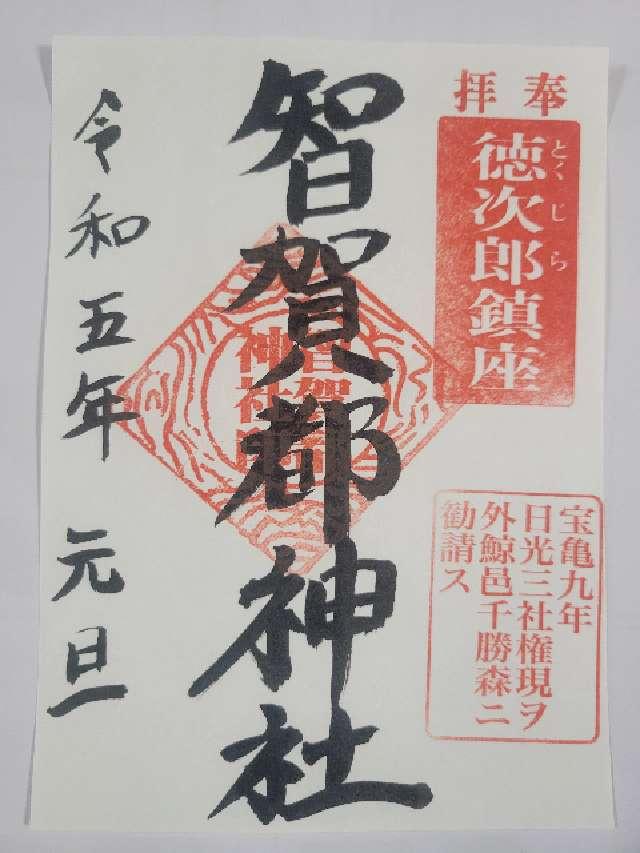 奉拝
徳次郎鎮座
とくじら
宝亀九年
日光三社権現ヲ
外鯨邑千勝森ニ
勧請ス
智賀都神社
令和五年 元旦